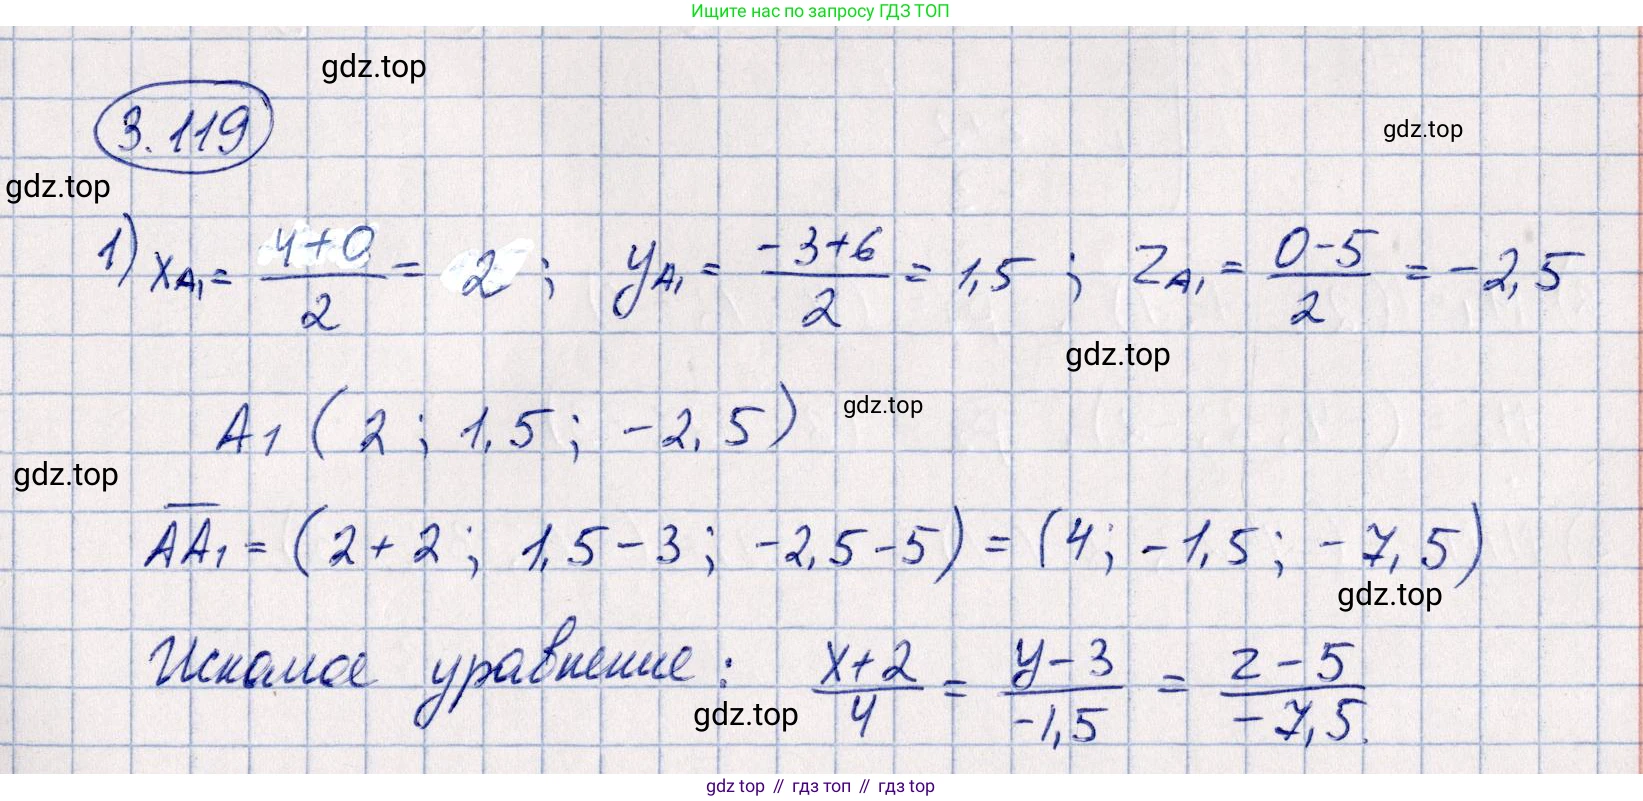 Ищите нас по запросу ГДЗ ТОП
gdz.top
3.119
gdz.top
gdz.top
1) x_A₁ = (4+0)/2 = 2 ; y_A₁ = (-3+6)/2 = 1,5 ; z_A₁ = (0-5)/2 = -2,5
gdz.top
A₁ ( 2 ; 1,5 ; -2,5 )
gdz.top
gdz.top
A̅A̅₁ = ( 2+2 ; 1,5-3 ; -2,5-5 ) = ( 4 ; -1,5 ; -7,5 )
gdz.top
Искомое уравнение : (x+2)/4 = (y-3)/-1,5 = (z-5)/-7,5.
gdz.top
gdz top // гдз топ // гдз top